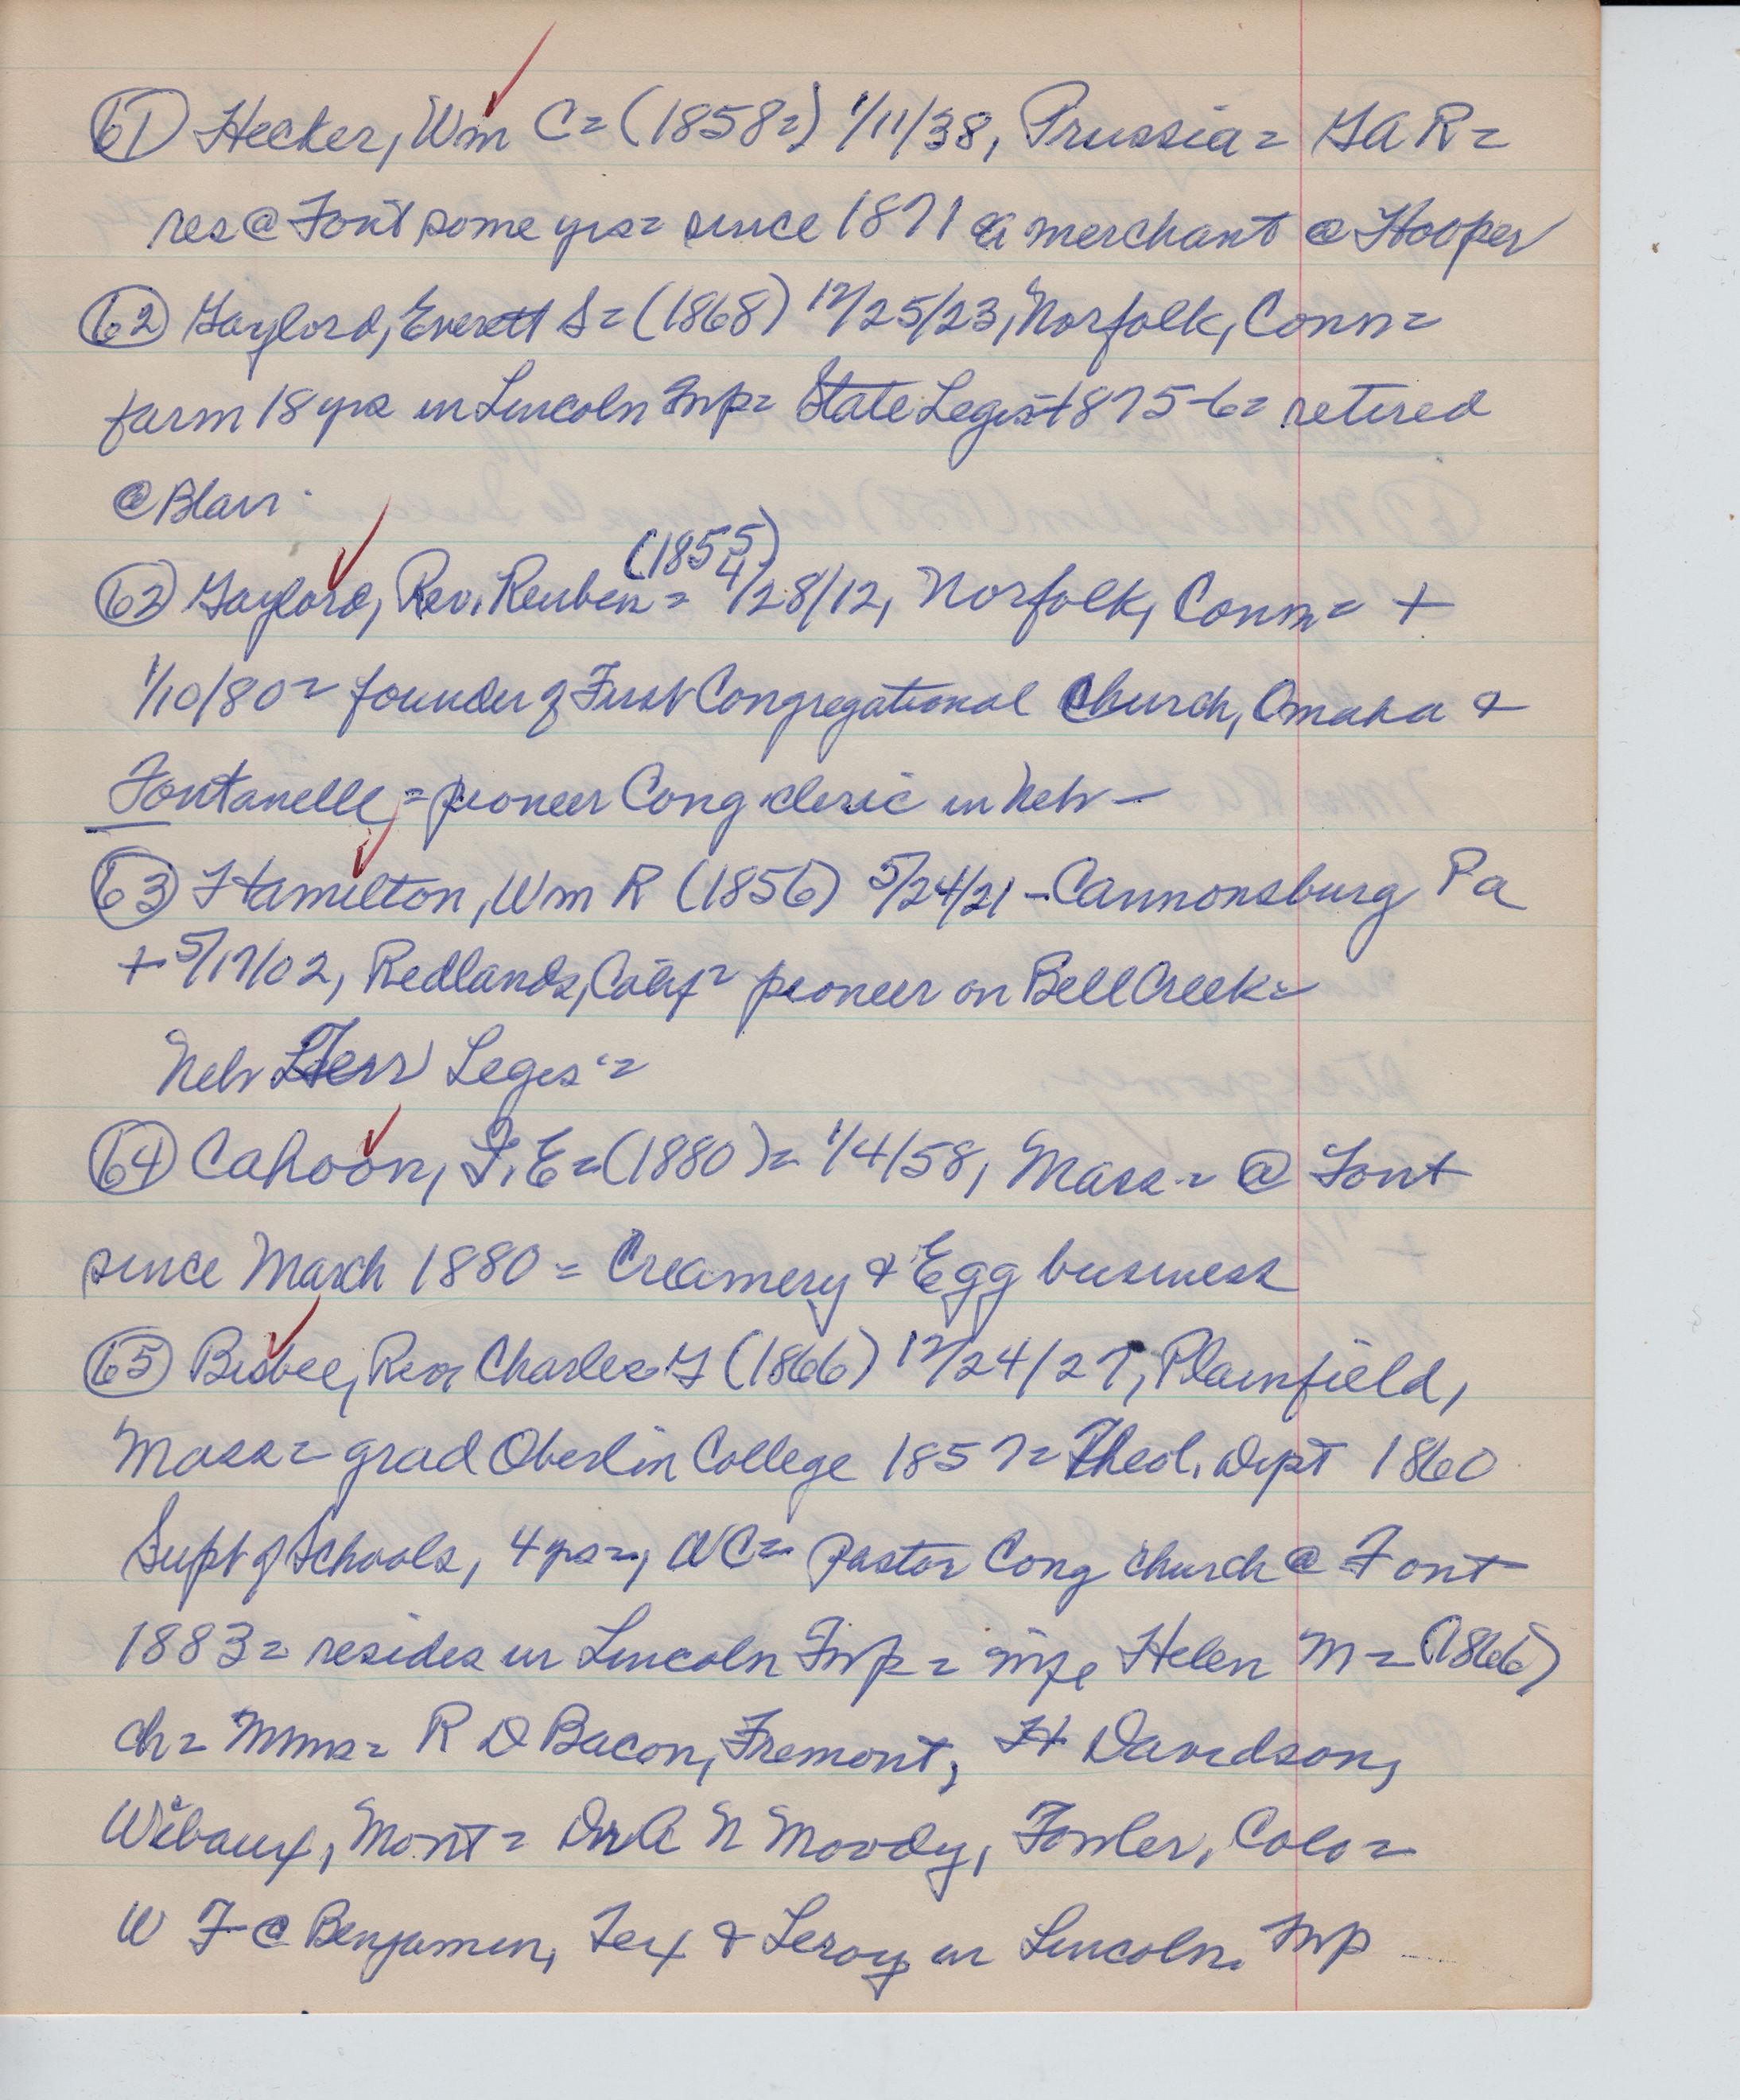 61 Hecker, Wm C= (1858=) 1/11/38, Prussia= GAR=
res @ Font some yrs= since 1871 a merchant @ Hooper
62 Gaylord, Everett S= (1868) 12/25/23, Norfolk, Conn=
farm 18 yrs in Lincoln Twp= State Legis= 1875-6= retired
@ Blair.
(1855)
62 Gaylord, Rev. Reuben= 4/28/12, Norfolk, Conn= +
1/10/80= founder of First Congregational Church, Omaha &
Fontanelle= pioneer Cong cleric in Nebr-
63 Hamilton, Wm R (1856) 5/24/21 - Cannonsburg Pa
+ 5/17/02, Redlands, Calif= pioneer on Bell Creek=
Nebr Terr Legis=
64 Cahoon, I. E= (1880)= 1/4/58, Mass.= @ Font
since March 1880= Creamery & Egg business
65 Bisbee, Rev Charles G (1866) 12/24/27, Plainfield,
Mass= grad Oberlin College 1857= Theol. Dept 1860
Supt of Schools, 4 yrs=, WC= Pastor Cong church @ Font
1883= resides in Lincoln Twp= wife Helen M= (1866)
ch= Mmes= R D Bacon, Fremont, H Davidson,
Wibaux, Mont= Dr A N Moody, Fowler, Colo=
W F @ Benjamen, Tex & Leroy in Lincoln. Twp